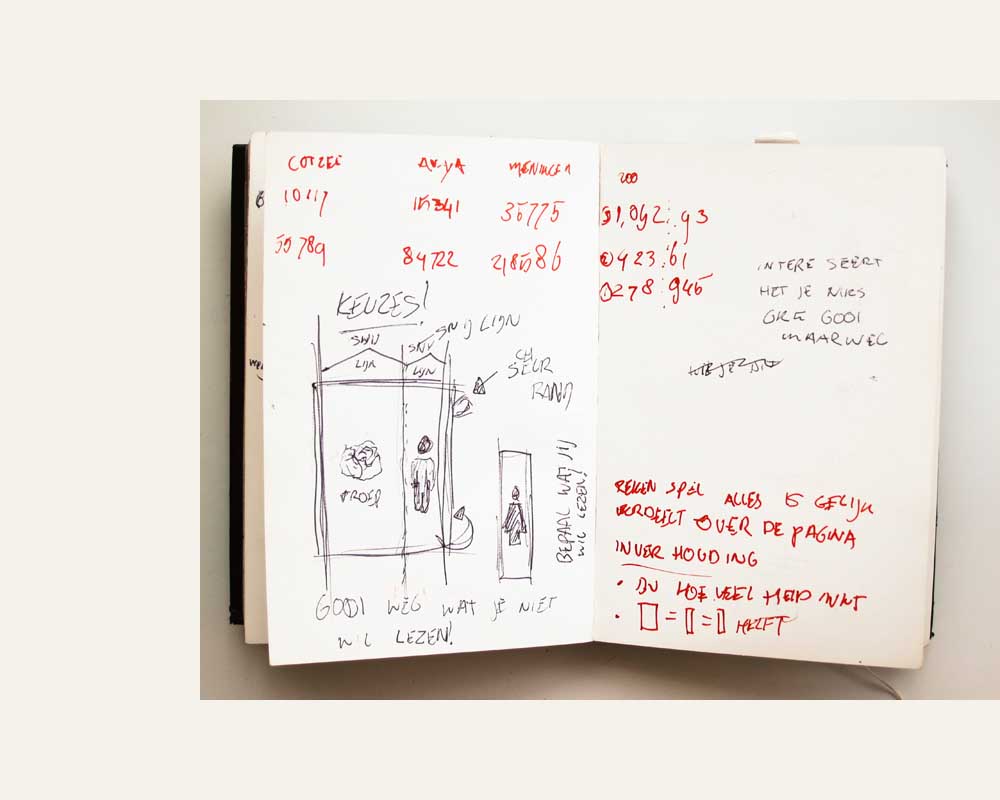 COTZEE AR-YA MENINGEN
10117 15341 35775
55789 84722 218586
KEUZES!
SNIJ LIJN
SNIJ
LIJN
SNIJ
LIJN
SCHEUR
RAND
PROEP
BEPAAL WAT JIJ
WIL LEZEN!
GOOI WEG WAT JE NIET
WIL LEZEN!
200
31,092.93
423.61
278 945
INTERESEERT
HET JE NIKS
GOOI
MAAR WEG
REKEN SPEL ALLES IS GELIJK
VERDEELT OVER DE PAGINA
IN VERHOUDING
• HOEVEEL
• = = HELFT